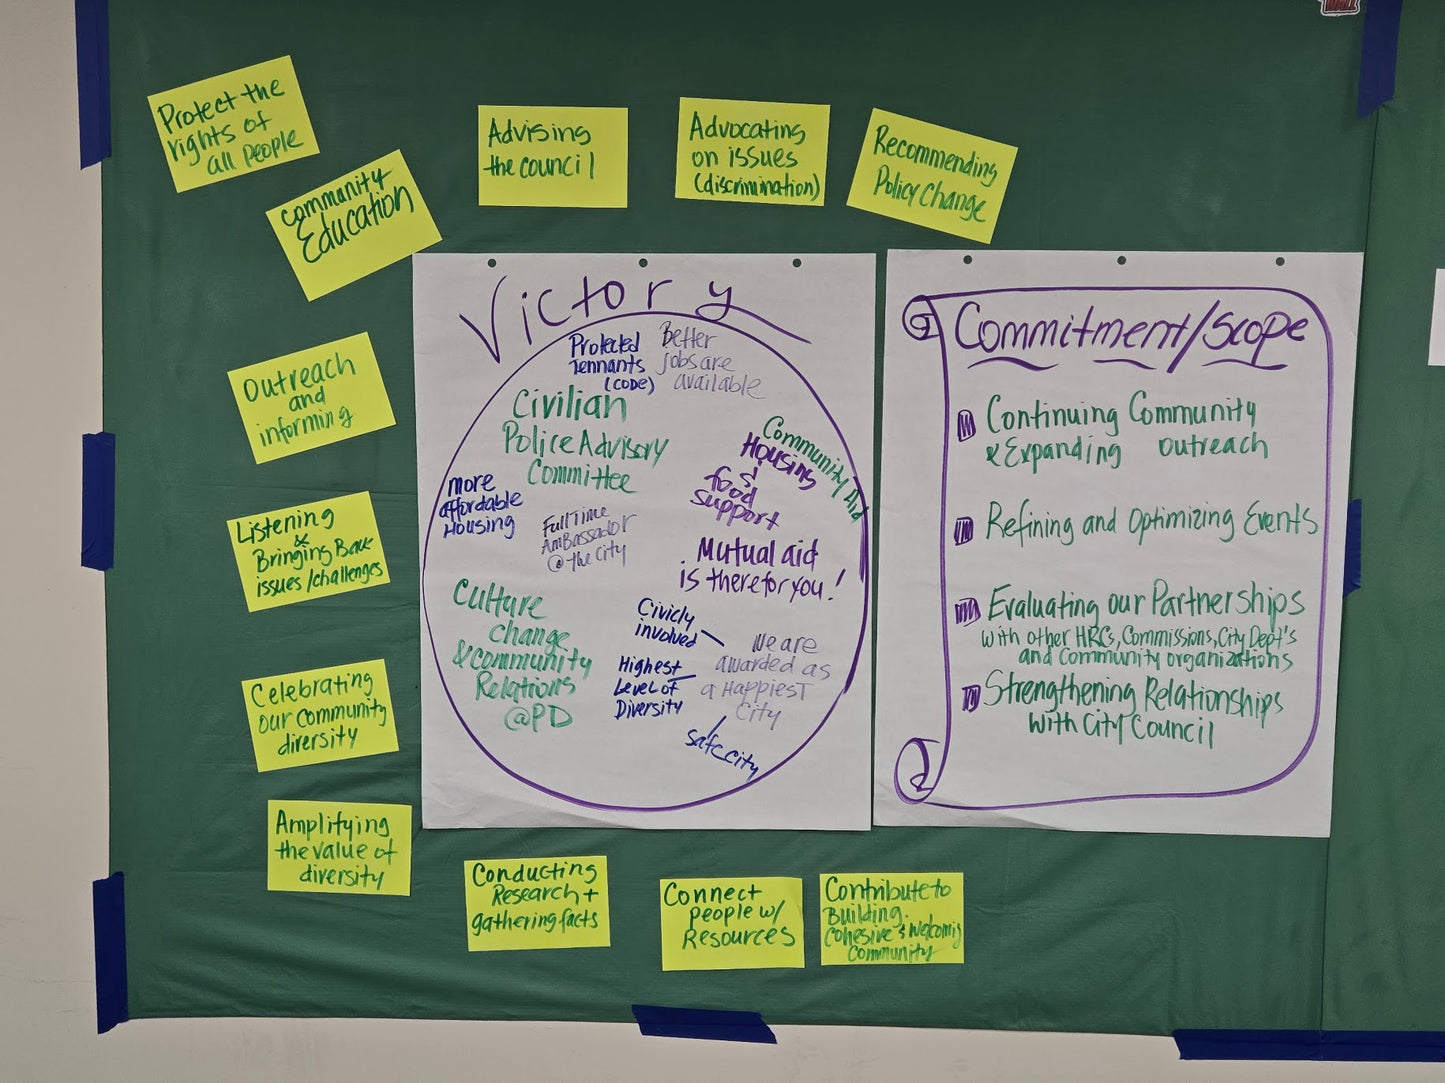 Protect the
rights of
all People
Community
Education
Advising
the council
Advocating
on issues
(discrimination)
Recommending
Policy Change
Outreach
and
informing
Listening
&
Bringing Back
issues/challenges
Celebrating
our community
diversity
Amplifying
the value of
diversity
Conducting
Research +
gathering facts
Connect
people w/
Resources
Contribute to
Building
cohesive & welcoming
community
Victory
Protected
Tennants
(CODE)
Better
jobs are
available
Civilian
Police Advisory
Committee
Community Aid
Housing
&
food
support
more
affordable
Housing
Full Time
Ambassador
@ the City
Mutual aid
is there for you!
Culture
change
& community
Relations
@PD
Civicly
involved
Highest
Level of
Diversity
We are
awarded as
a Happiest
City
safe city
Commitment/Scope
Continuing Community
& Expanding outreach
Refining and Optimizing Events
Evaluating our Partnerships
with other HRCs, Commissions, City Dept's
and Community organizations
Strengthening Relationships
with City Council